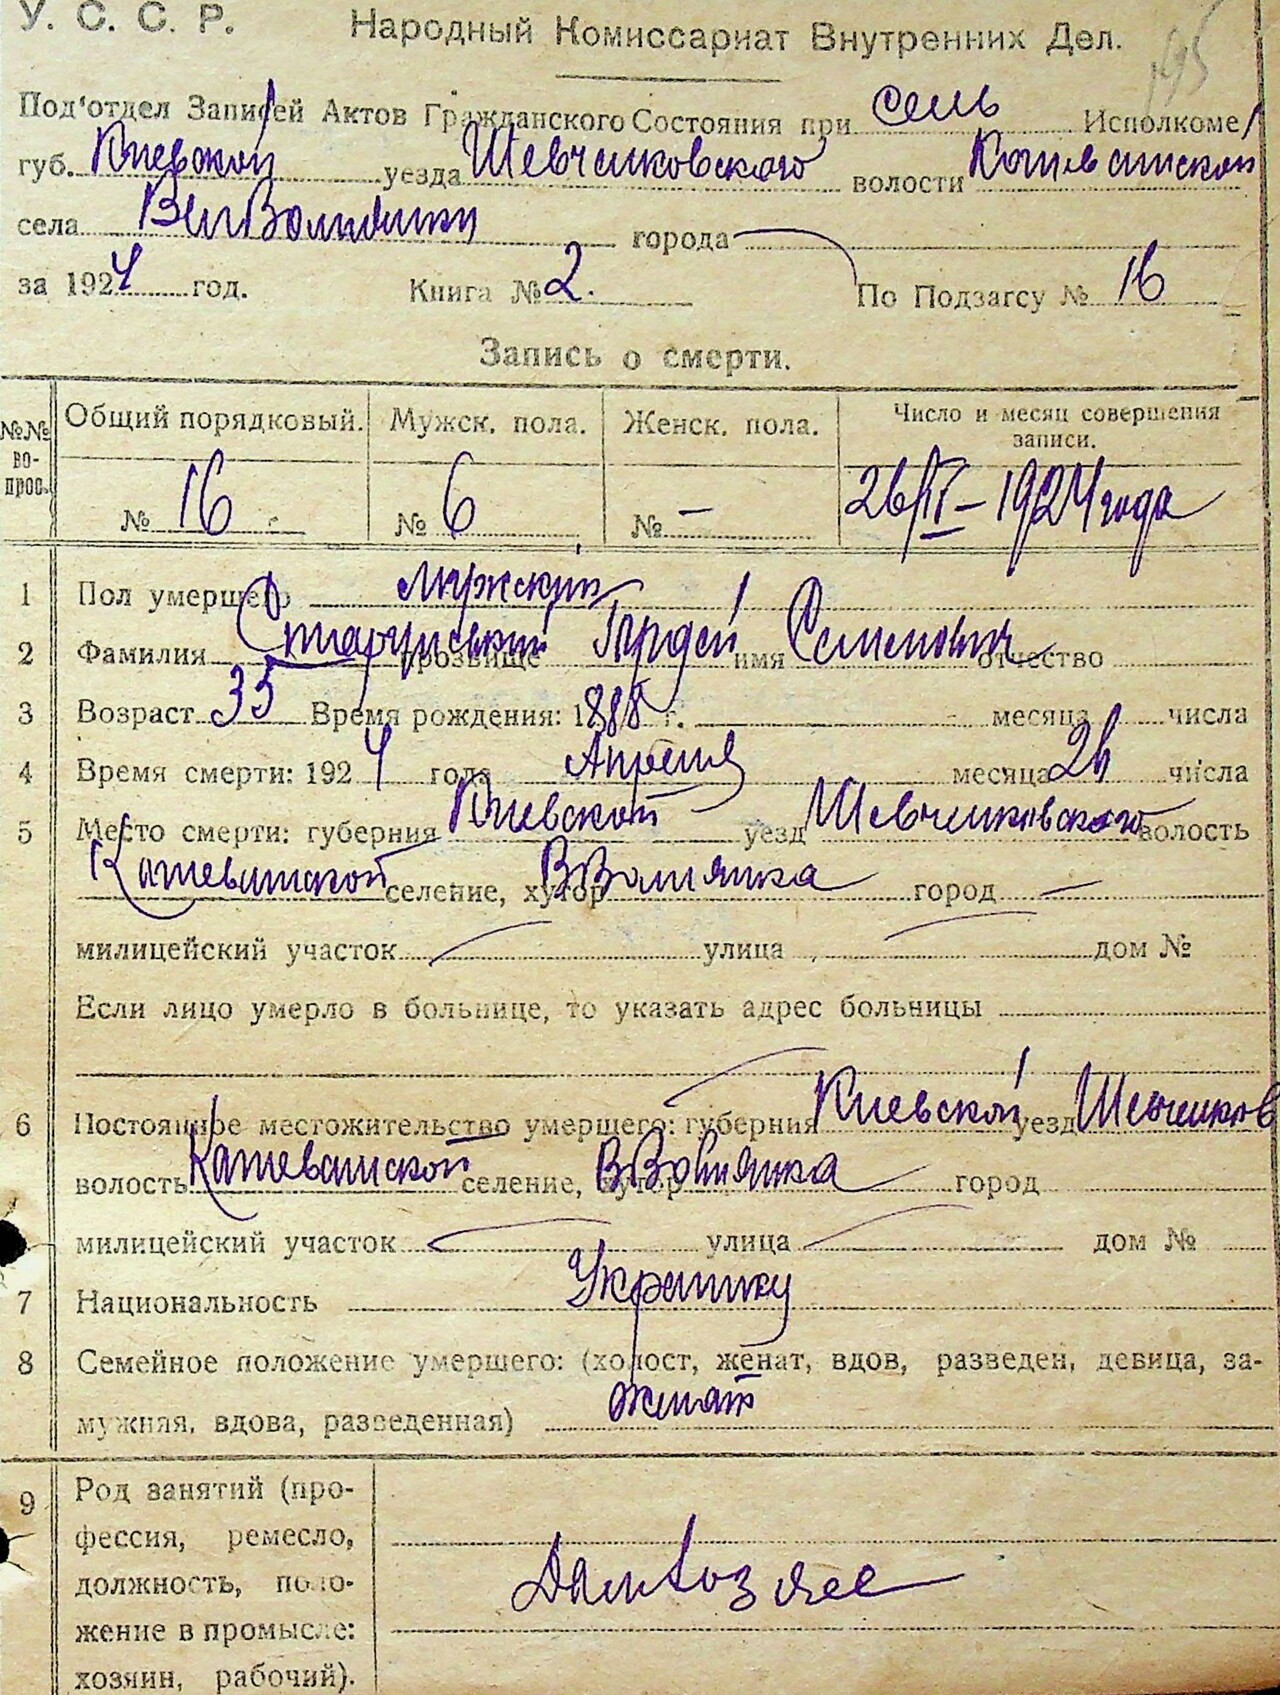 У. С. С. Р. Народный Комиссариат Внутренних Дел.
195
Под'отдел Записей Актов Гражданского Состояния при сель Исполкоме
губ. Киевской уезда Шевченковского волости
села города
за 1924 год. Книга № 2. По Подзагсу № 16
Запись о смерти.
№№ во-прос. Общий порядковый. Мужск. пола. Женск. пола. Число и месяц совершения записи.
№ 16 № 6 № - 26/IV - 1924 года
1 Пол умершего мужский
2 Фамилия прозвище Гордей имя Семенович отчество
3 Возраст 35 Время рождения: 1888 г. месяца числа
4 Время смерти: 1924 года Апреля месяца 26 числа
5 Место смерти: губерния Киевской уезд Шевченковского волость
селение, хутор ВВолнянка город —
милицейский участок — улица — дом №
Если лицо умерло в больнице, то указать адрес больницы
6 Постоянное местожительство умершего: губерния Киевской уезд Шевченков
волость селение, хутор ВВолнянка город
милицейский участок — улица — дом №
7 Национальность
8 Семейное положение умершего: (холост, женат, вдов, разведен, девица, за-
мужняя, вдова, разведенная) женат
9 Род занятий (про-
фессия, ремесло,
должность, поло-
жение в промысле:
хозяин, рабочий).